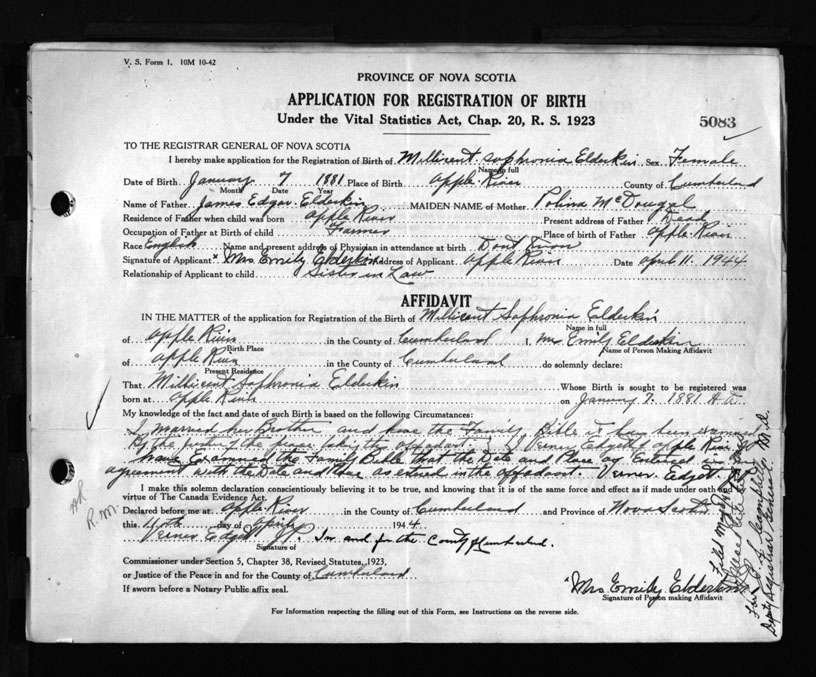 V. S. Form 1. 10M 10-42
PROVINCE OF NOVA SCOTIA
APPLICATION FOR REGISTRATION OF BIRTH
Under the Vital Statistics Act, Chap. 20, R. S. 1923
5083
TO THE REGISTRAR GENERAL OF NOVA SCOTIA
I hereby make application for the Registration of Birth of Millicent Sophronia Elderkin Sex Female
Name in full
Date of Birth January 7 1881 Place of Birth Apple River County of Cumberland
Month Date Year
Name of Father James Edgar Elderkin MAIDEN NAME of Mother Polina McDougal
Residence of Father when child was born Apple River Present address of Father Dead
Occupation of Father at Birth of child Farmer Place of birth of Father Apple River
Race English Name and present address of Physician in attendance at birth Dont Know
Signature of Applicant x Mrs Emily Elderkin Address of Applicant Apple River Date April 11. 1944
Relationship of Applicant to child Sister in Law
AFFIDAVIT
IN THE MATTER of the application for Registration of the Birth of Millicent Sophronia Elderkin
Name in full
of Apple River in the County of Cumberland I, Mrs Emily Elderkin
Birth Place Name of Person Making Affidavit
of Apple River in the County of Cumberland do solemnly declare:
Present Residence
That Millicent Sophronia Elderkin Whose Birth is sought to be registered was
born at Apple River on January 7. 1881 A D
My knowledge of the fact and date of such Birth is based on the following Circumstances:
I married her Brother and have the Family Bible it has been examined
By the justice of the peace taking this affadavid I Verner Edgett of Apple River
have Examined the Family Bible that the Date and Place are Entered in
agreement with the Date and Place as entered in the affadavit. Verner Edgett J P
I make this solemn declaration conscientiously believing it to be true, and knowing that it is of the same force and effect as if made under oath and by
virtue of The Canada Evidence Act.
Declared before me at Apple River in the County of Cumberland and Province of Nova Scotia
this 11th day of April 1944
Verner Edgett JP In and for the County of Cumberland.
Signature of
Commissioner under Section 5, Chapter 38, Revised Statutes, 1923,
or Justice of the Peace in and for the County of Cumberland
If sworn before a Notary Public affix seal.
"Mrs Emily Elderkin
Signature of Person making Affidavit
For Information respecting the filling out of this Form, see Instructions on the reverse side.
R.M.
Filed
Deputy Registrar General